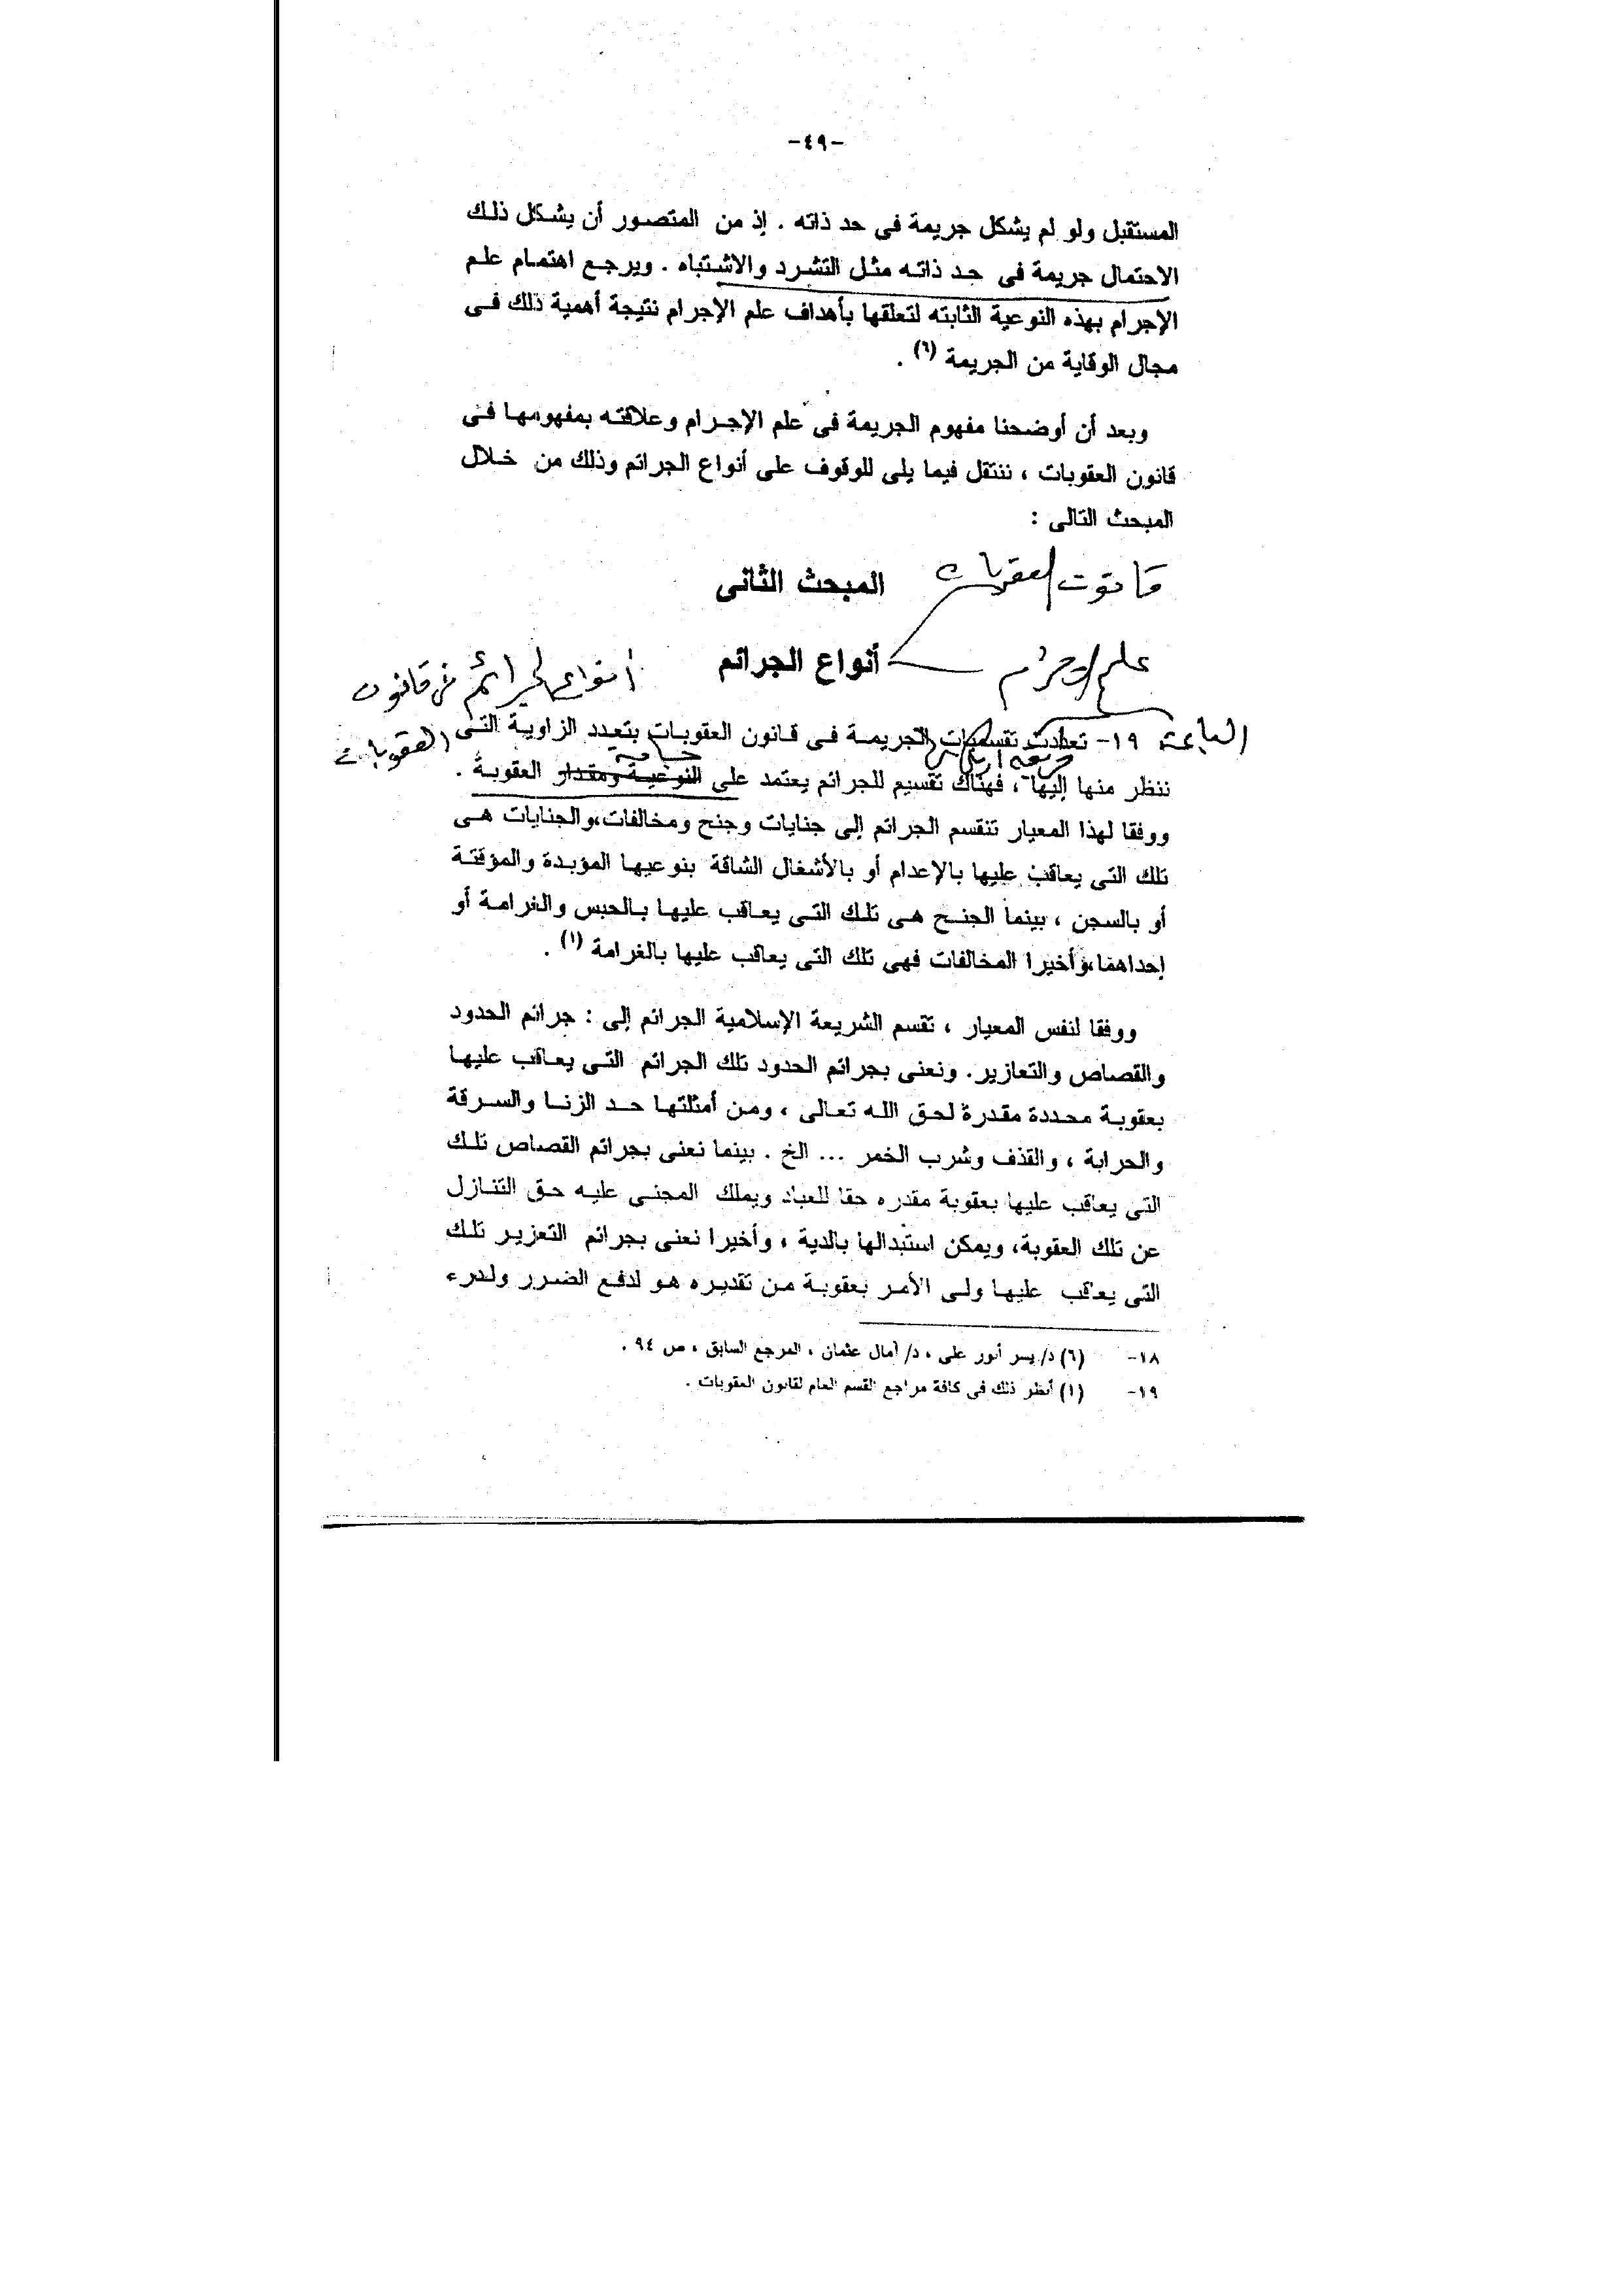 -٤٩-
المستقبل ولو لم يشكل جريمة فى حد ذاته . إذ من المتصور أن يشكل ذلك
الاحتمال جريمة فى حد ذاته مثل التشرد والاشتباه . ويرجع اهتمام علم
الإجرام بهذه النوعية الثابته لتعلقها بأهداف علم الإجرام نتيجة أهمية ذلك فى
مجال الوقاية من الجريمة (٦) .
وبعد أن أوضحنا مفهوم الجريمة فى علم الإجرام وعلاقته بمفهومها فى
قانون العقوبات ، ننتقل فيما يلى للوقوف على أنواع الجرائم وذلك من خلال
المبحث التالى :
قانون العقوبات
المبحث الثانى
علم الإجرام
أنواع الجرائم
أنواع الجرائم فى قانون
العقوبات
١٩- تعددت تقسيمات الجريمة فى قانون العقوبات بتعدد الزاوية التى
ننظر منها إليها ، فهناك تقسيم للجرائم يعتمد على النوعية ومقدار العقوبة .
ووفقا لهذا المعيار تنقسم الجرائم إلى جنايات وجنح ومخالفات،والجنايات هى
تلك التى يعاقب عليها بالإعدام أو بالأشغال الشاقة بنوعيها المؤبدة والمؤقتة
أو بالسجن ، بينما الجنح هى تلك التى يعاقب عليها بالحبس والغرامة أو
إحداهما،وأخيرا المخالفات فهى تلك التى يعاقب عليها بالغرامة (١) .
ووفقا لنفس المعيار ، تقسم الشريعة الإسلامية الجرائم إلى : جرائم الحدود
والقصاص والتعازير. ونعنى بجرائم الحدود تلك الجرائم التى يعاقب عليها
بعقوبة محددة مقدرة لحق الله تعالى ، ومن أمثلتها حد الزنا والسرقة
والحرابة ، والقذف وشرب الخمر ... الخ . بينما نعنى بجرائم القصاص تلك
التى يعاقب عليها بعقوبة مقدره حقا للعباد ويملك المجنى عليه حق التنازل
عن تلك العقوبة، ويمكن استبدالها بالدية ، وأخيرا نعنى بجرائم التعزير تلك
التى يعاقب عليها ولى الأمر بعقوبة من تقديره هو لدفع الضرر ولدرء
١٨- (٦) د/ يسر أنور على ، د/ آمال عثمان ، المرجع السابق ، ص ٩٤ .
١٩- (١) أنظر ذلك فى كافة مراجع القسم العام لقانون العقوبات .